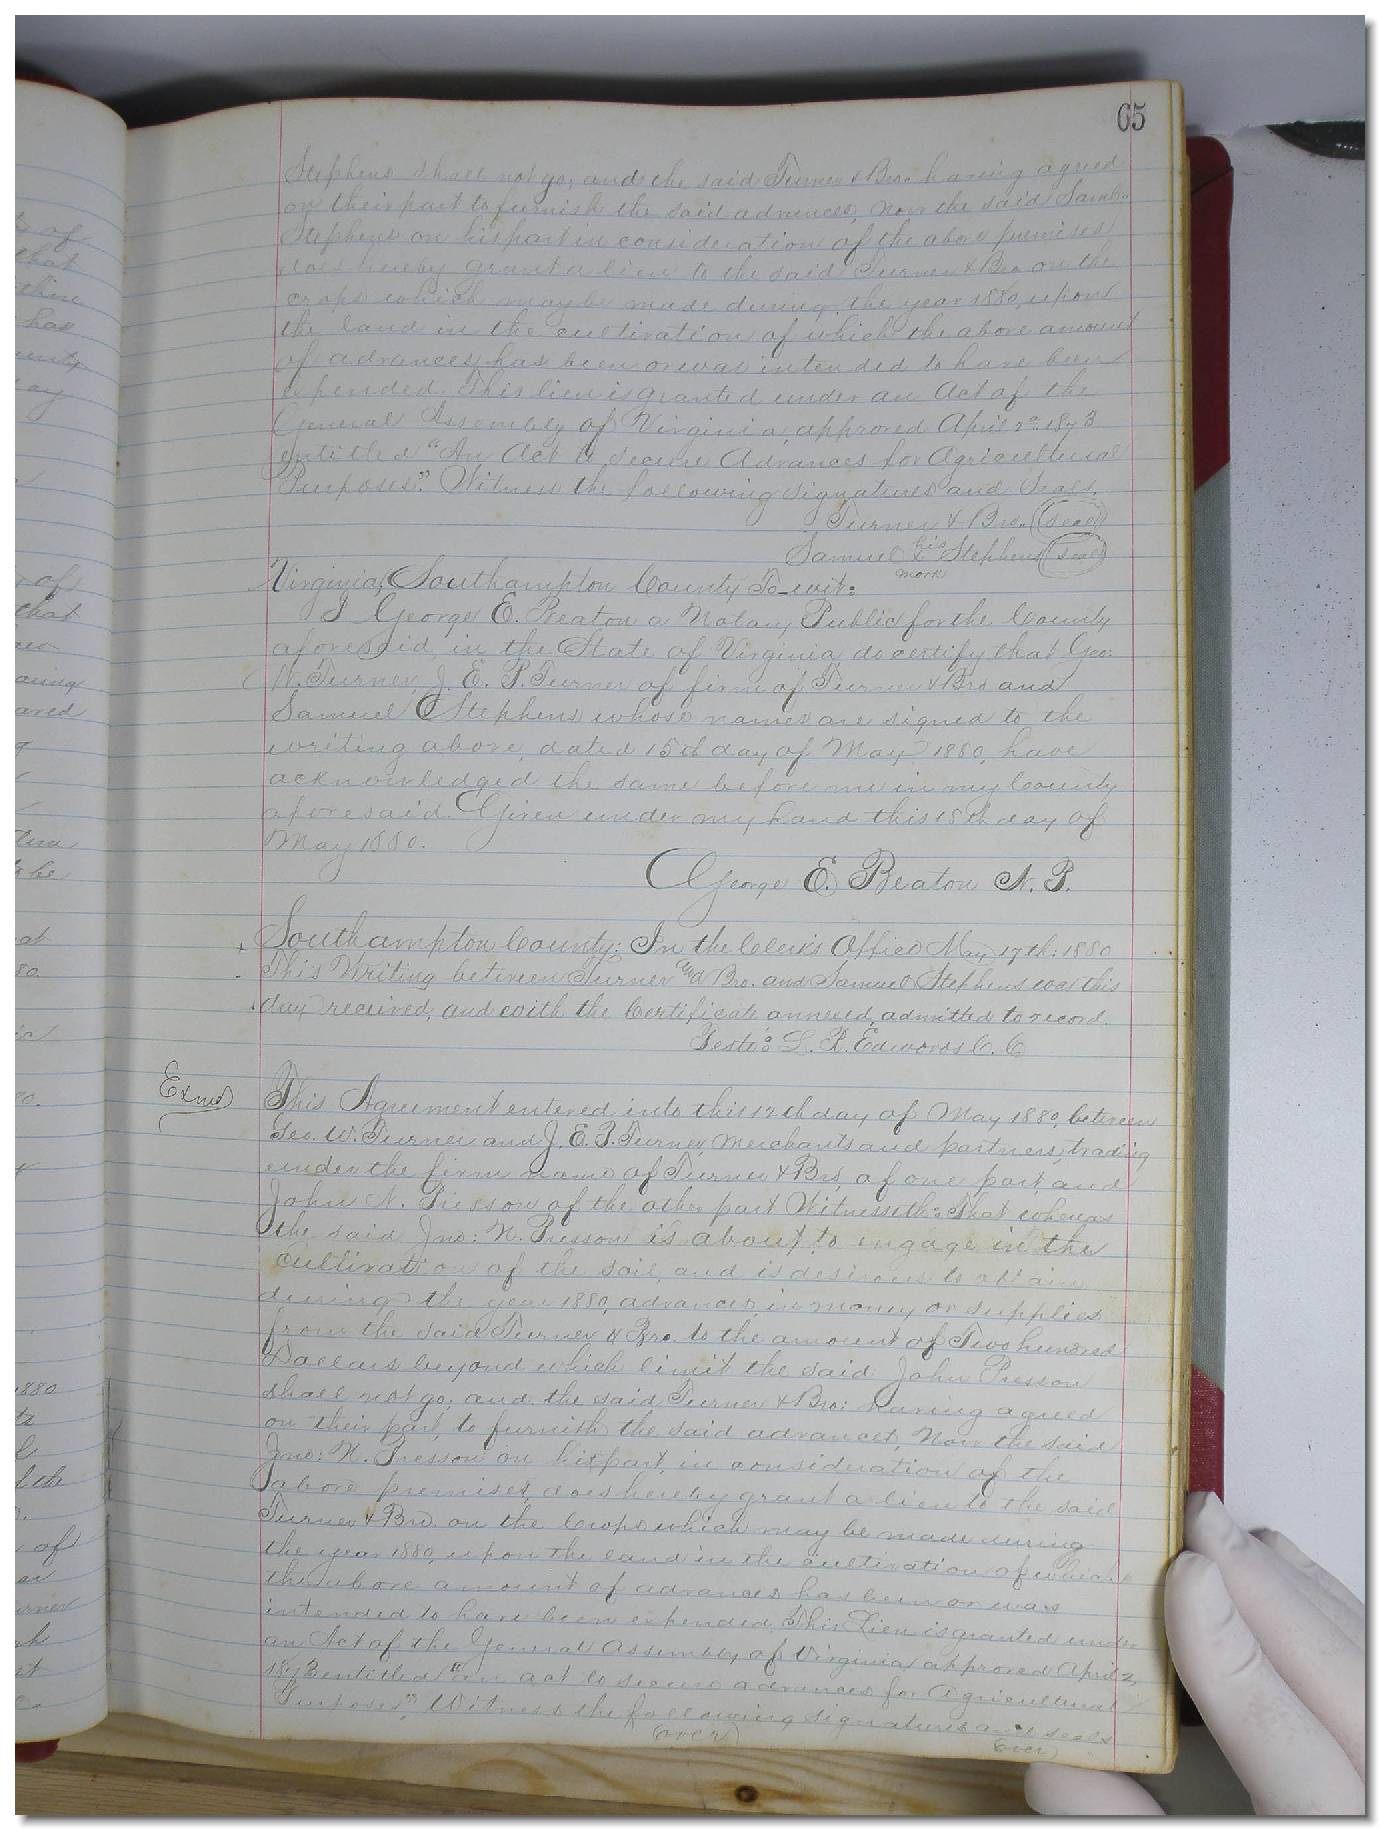 65
Stephens shall not go, and the said Turner & Bro. having agreed
on their part to furnish the said advances, now the said Saml.
Stephens on his part in consideration of the above premises
does hereby grant a lien to the said Turner & Bro on the
crops which may be made during the year 1880, upon
the land in the cultivation of which the above amount
of advances has been or was intended to have been
expended. This lien is granted under an Act of the
General Assembly of Virginia, approved April 2d 1873
entitled "An Act to secure Advances for Agricultural
Purposes." Witness the following signatures and Seals.
Turner & Bro. (seal)
Samuel his Stephens (seal)
x
mark
Virginia, Southampton County To-wit:
I George E. Beaton a Notary Public for the County
aforesaid, in the State of Virginia, do certify that Geo:
W. Turner, J. E. P. Turner of firm of Turner & Bro and
Samuel Stephens whose names are signed to the
writing above, dated 15th day of May 1880, have
acknowledged the same before me in my County
aforesaid. Given under my hand this 15th day of
May 1880.
George E. Beaton N. P.
Southampton County: In the Clerk's Office May 17th: 1880
This Writing between Turner and Bro. and Samuel Stephens was this
day received, and with the Certificate annexed, admitted to record.
Teste: L. R. Edwards C. C
Exmd
This Agreement entered into this 12th day of May 1880, between
Geo. W. Turner and J. E. P. Turner, Merchants and partners, trading
under the firm name of Turner & Bro, of one part, and
John N. Presson of the other part Witnesseth: That whereas
the said Jno: N. Presson is about to engage in the
cultivation of the soil, and is desirous to obtain
during the year 1880, advances in money or supplies
from the said Turner & Bro. to the amount of Two hundred
Dollars beyond which limit the said John Presson
shall not go, and the said Turner & Bro: having agreed
on their part, to furnish the said advances, Now the said
Jno: N. Presson on his part, in consideration of the
above premises, does hereby grant a lien to the said
Turner & Bro. on the Crops which may be made during
the year 1880, upon the land in the cultivation of which
the above amount of advances has been or was
intended to have been expended. This Lien is granted under
an Act of the General Assembly of Virginia approved April 2,
1873 entitled "an act to secure advances for Agricultural
Purposes". Witness the following signatures and seals
(over)
(over)